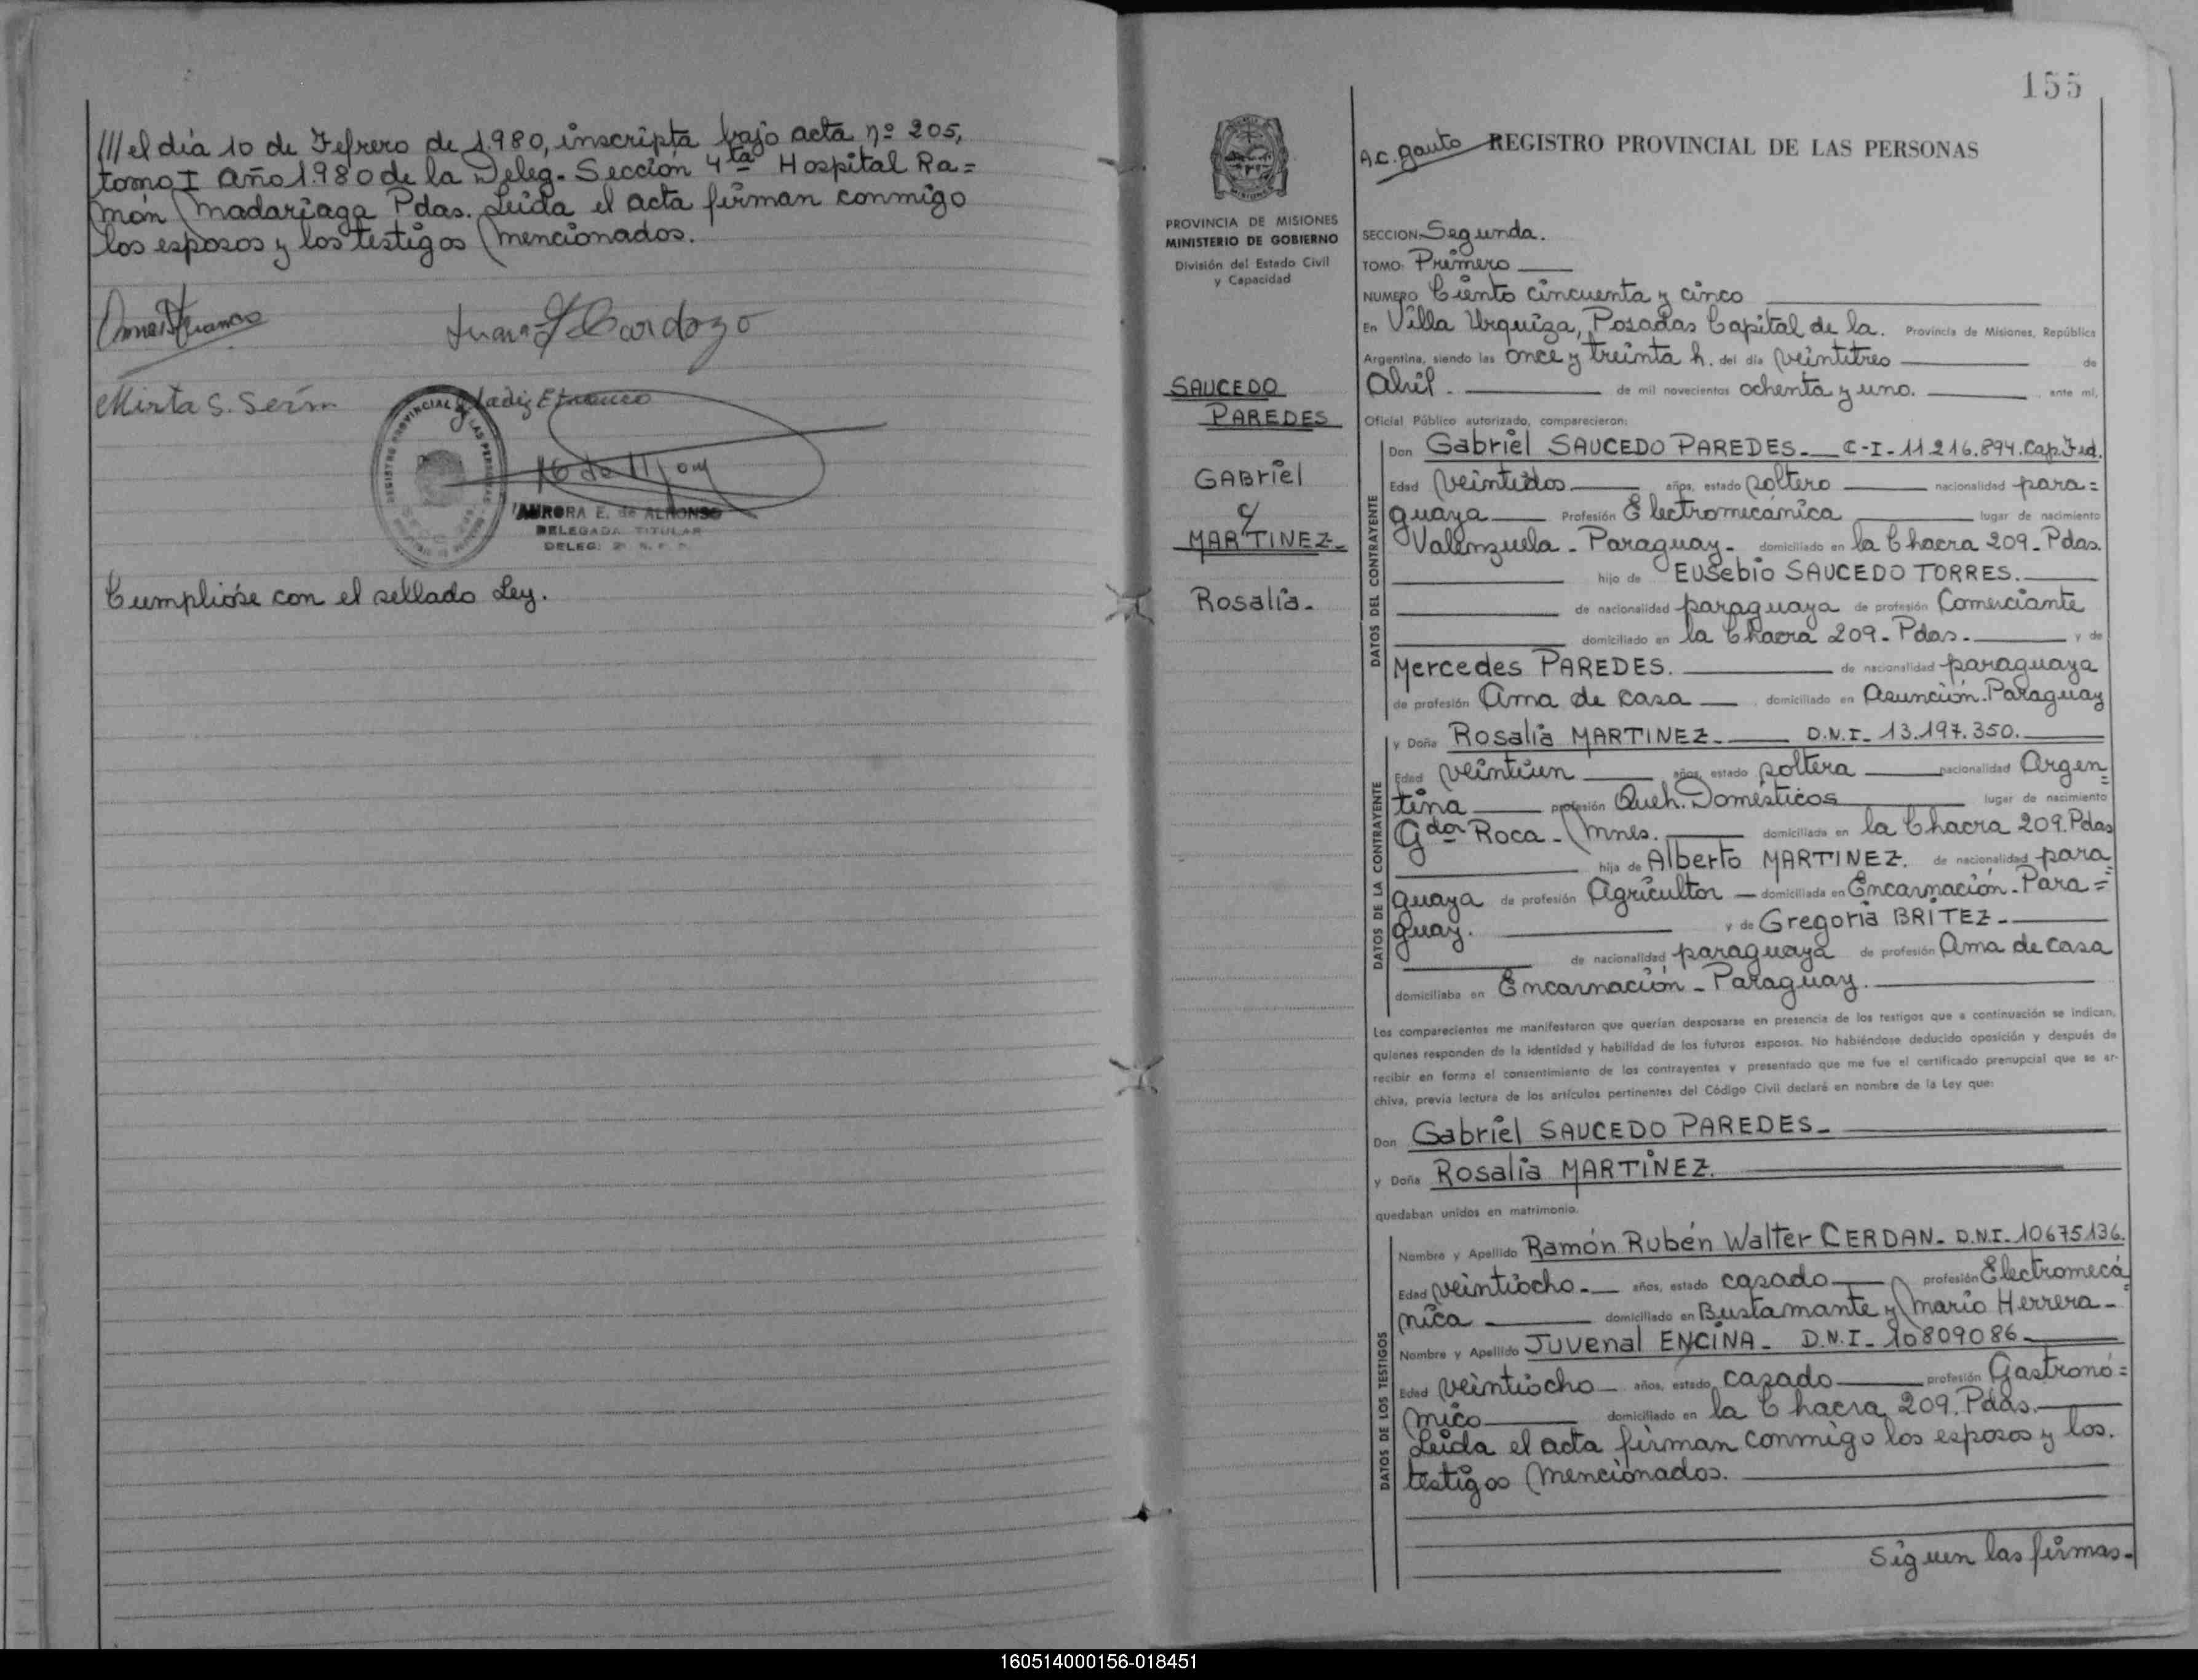 /// el día 10 de Febrero de 1.980, inscripta bajo acta nº 205,
tomo I año 1.980 de la Deleg. Sección 4ta Hospital Ra=
món Madariaga Pdas. Leída el acta firman conmigo
los esposos y los testigos mencionados.
Juana Cardozo
Mirta S.
AURORA E. de ALFONSO
DELEGADA TITULAR
Cumplióse con el sellado Ley.
155
A.C. Gauto
REGISTRO PROVINCIAL DE LAS PERSONAS
PROVINCIA DE MISIONES
MINISTERIO DE GOBIERNO
División del Estado Civil
y Capacidad
SAUCEDO
PAREDES
GABriel
c/
MARTINEZ-
Rosalía-
SECCION Segunda.
TOMO: Primero
NUMERO Ciento cincuenta y cinco
En Villa Urquiza, Posadas Capital de la. Provincia de Misiones, República
Argentina, siendo las once y treinta h. del día veintitres de
Abril. de mil novecientos ochenta y uno. ante mí,
Oficial Público autorizado, comparecieron:
DATOS DEL CONTRAYENTE
Don Gabriel SAUCEDO PAREDES- C-I-11.216.894.Cap.Fed.
Edad veintidos años, estado soltero nacionalidad para=
guaya Profesión Electromecánica lugar de nacimiento
Valenzuela - Paraguay- domiciliado en la Chacra 209- Pdas.
hijo de EUSebio SAUCEDO TORRES.
de nacionalidad paraguaya de profesión Comerciante
domiciliado en la Chacra 209- Pdas- y de
Mercedes PAREDES. de nacionalidad paraguaya
de profesión Ama de casa domiciliado en Asunción.Paraguay
DATOS DE LA CONTRAYENTE
y Doña Rosalía MARTINEZ- D.N.I- 13.197.350.
Edad veintiun años, estado soltera nacionalidad Argen=
tina profesión Queh. Domésticos lugar de nacimiento
Gdor Roca- Mnes. domiciliada en la Chacra 209.Pdas
hija de Alberto MARTINEZ. de nacionalidad para=
guaya de profesión Agricultor domiciliada en Encarnación-Para=
guay. y de Gregoria BRITEZ-
de nacionalidad paraguaya de profesión Ama de casa
domiciliaba en Encarnación - Paraguay.
Los comparecientes me manifestaron que querían desposarse en presencia de los testigos que a continuación se indican,
quienes responden de la identidad y habilidad de los futuros esposos. No habiéndose deducido oposición y después de
recibir en forma el consentimiento de los contrayentes y presentado que me fue el certificado prenupcial que se ar-
chiva, previa lectura de los artículos pertinentes del Código Civil declaré en nombre de la Ley que:
Don Gabriel SAUCEDO PAREDES-
y Doña Rosalía MARTINEZ.
quedaban unidos en matrimonio.
DATOS DE LOS TESTIGOS
Nombre y Apellido Ramón Rubén Walter CERDAN- D.N.I-10675136.
Edad veintiocho- años, estado casado profesión Electromecá=
nica domiciliado en Bustamante y Mario Herrera-
Nombre y Apellido Juvenal ENCINA- D.N.I- 10809086
Edad veintiocho años, estado casado profesión Gastronó=
mico domiciliado en la Chacra 209.Pdas.
Leída el acta firman conmigo los esposos y los.
testigos mencionados.
Siguen las firmas-
160514000156-018451